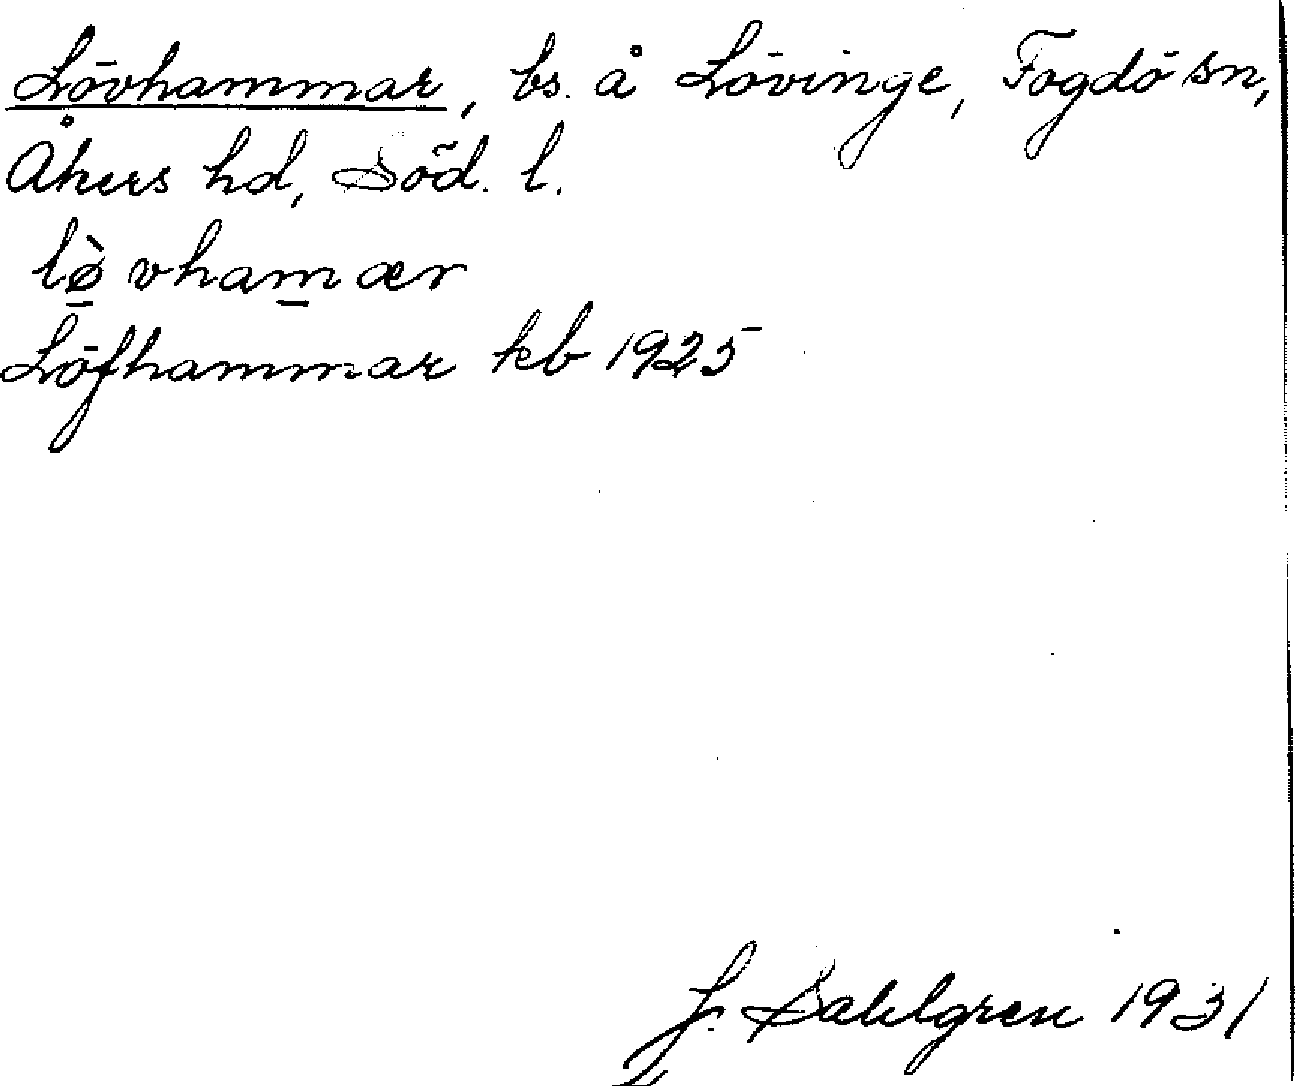 Lövhammar, bs. å Lövinge, Fogdö sn,
Åkers hd, Söd. l.
lø̀vhamær
Löfhammar kb 1925
Sahlgren 1931